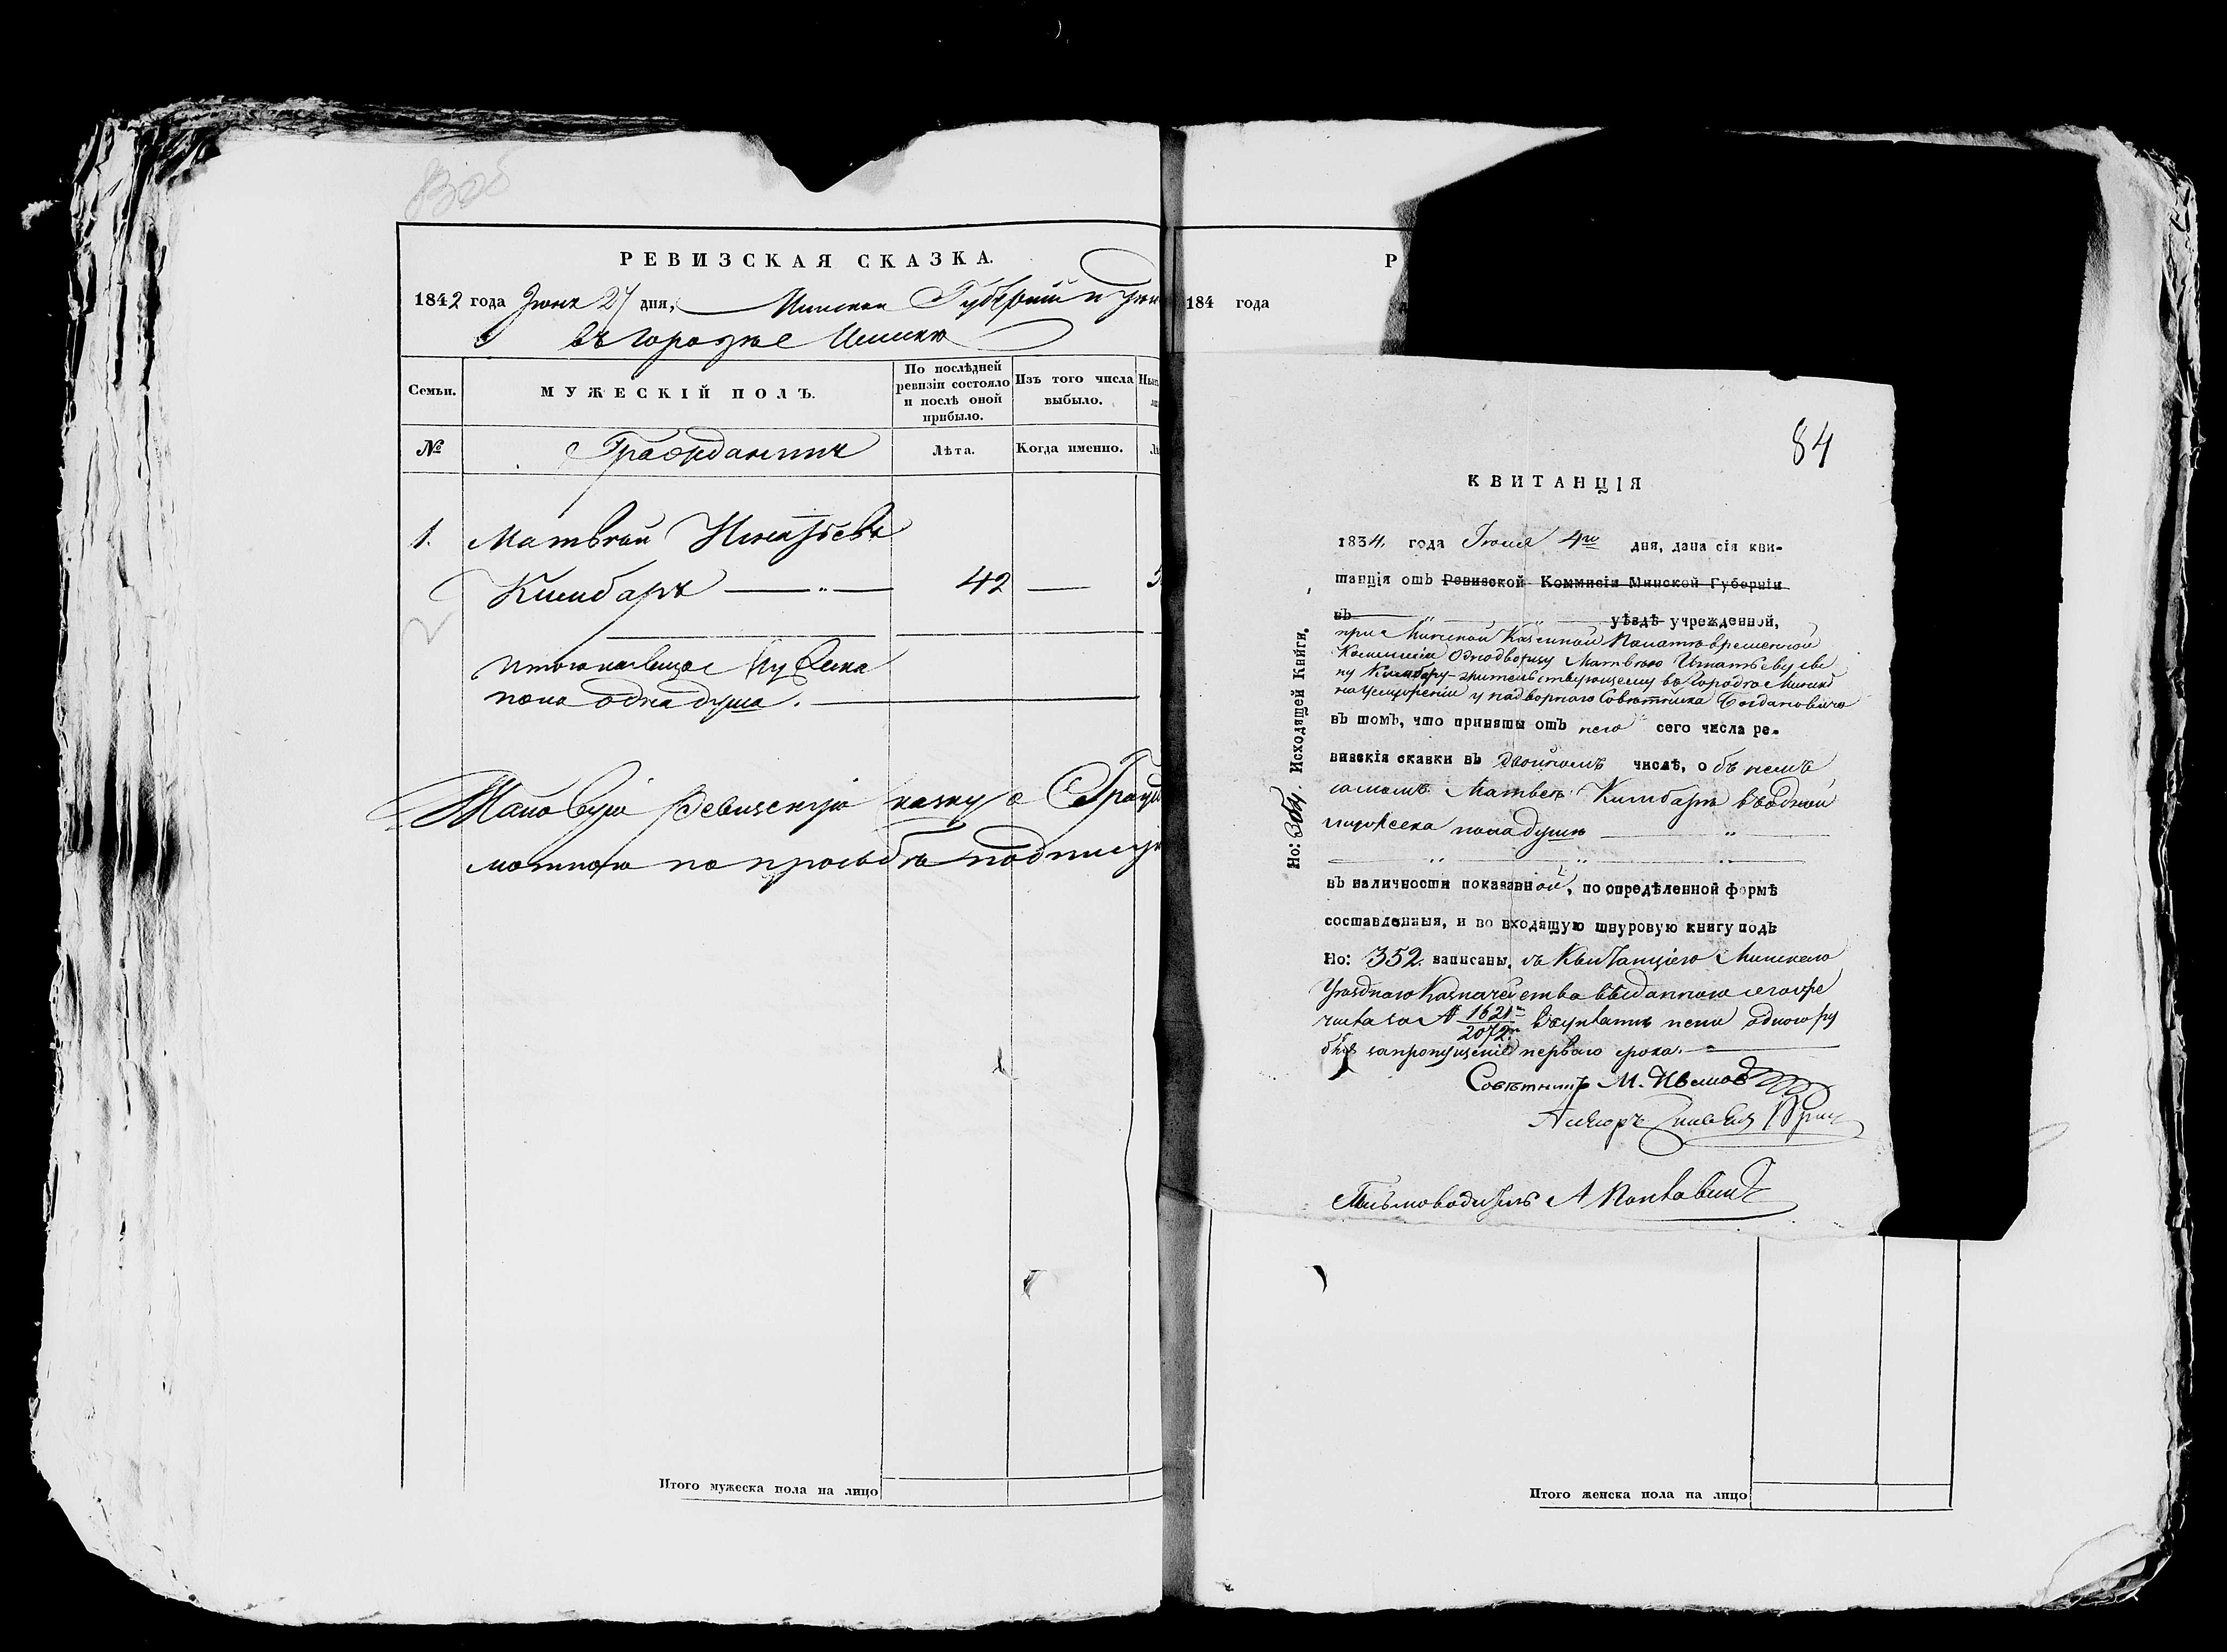 РЕВИЗСКАЯ СКАЗКА.
1842 года Июня 27 дня, Минской Губерніи и уез
въ городѣ Минскѣ
Семьи.
МУЖЕСКІЙ ПОЛЪ.
По послѣдней
ревизіи состояло
и послѣ оной
прибыло.
Изъ того числа
выбыло.
№
Гражданинъ
Лѣта.
Когда именно.
1. Матвѣй Игнатьевъ
Кимбаръ 42
Итого налицо мужеска
пола одна душа.
Таковую ревизскую сказку а
по прозьбѣ подпису
Итого мужеска пола на лицо
Р
184 года
84
КВИТАНЦІЯ
1834. года Іюня 4го дня, дана сія кви-
танція отъ Ревизской Коммисіи Минской Губерніи
въ уѣздѣ учрежденной,
при Минской Казенной Палатѣ временной
Коммисіи Однодворцу Матвѣю Игнатьеву сы
ну Кимбару жительствующему въ Городѣ Минскѣ
у надворнаго Совѣтника Богдановича
въ томъ, что приняты отъ него сего числа ре-
визскія сказки въ двойномъ числѣ, о бъ немъ
самомъ Матвеѣ Кимбарѣ въ одной
мужеска пола душѣ
въ наличности показанной, по опредѣленной формѣ
составленныя, и во входящую шнуровую книгу подъ
Но: 352. записаны, съ Квитанціею Минскаго
Уѣзднаго Казначейства выданною сего же
числа за № 1621/2072 въ уплатѣ пени одного ру
бля за пропущеніе перваго срока.
Совѣтникъ М. Ивановъ
Письмоводитель А
Но: Исходящей Книги.
Итого женска пола на лицо